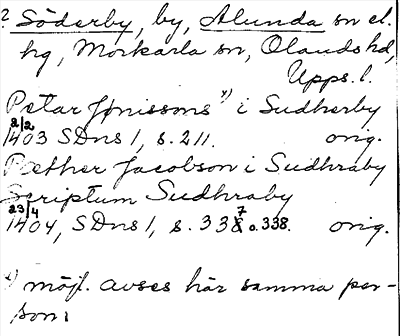 ? Söderby, by, Alunda sn el.
hg, Morkarla sn, Olands hd,
Upps. l.
Petar Jonissons x) i Sudherby
2/2 1403 SDns 1, s. 211. orig.
Pæther Jacobson i Sudhraby
Scriptum Sudhraby
23/4 1404, SDns 1, s. 337 o. 338. orig.
x) möjl. avses här samma per-
son.